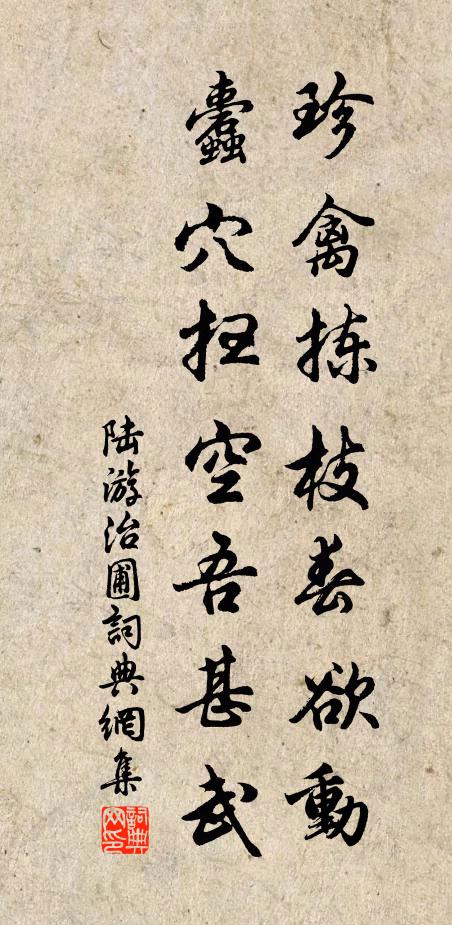 珍禽拣枝春欲動
蠹穴空吾甚武
陆游治圃詞典網集
詞典网印